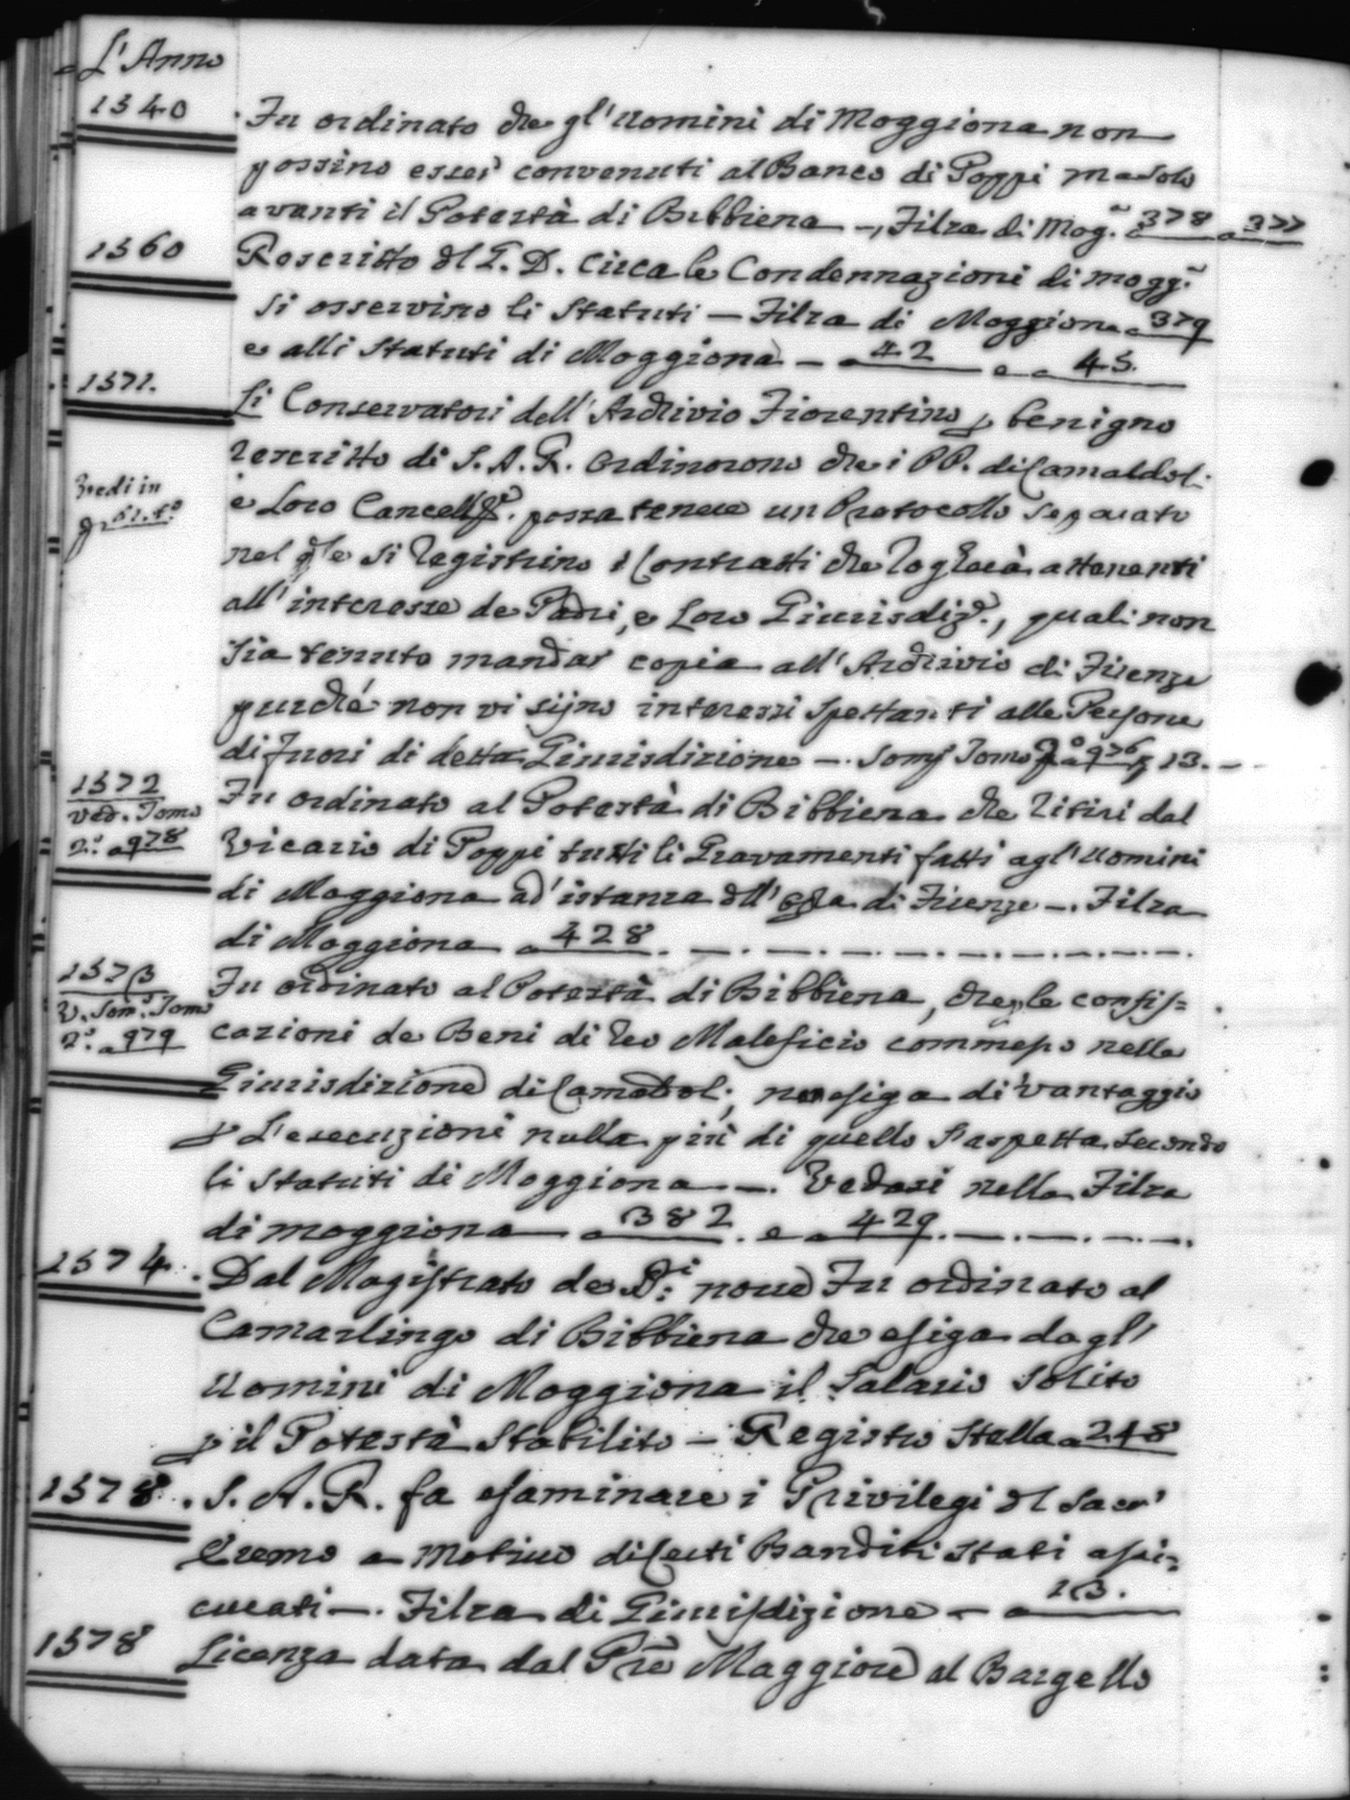 L'Anno
1540
Fu ordinato che gl'Uomini di Moggiona non
possino esser convenuti al Banco di Poppi ma solo
avanti il Potestà di Bibbiena -, Filza di Mog.a a 378 a 377
1560
Rescritto del G. D. circa le Condennazioni di mogg.a
si osservino li Statuti - Filza di Moggiona a 379
e alli Statuti di Moggiona - a 42 e a 45.
1571.
Li Conservatori dell'Archivio Fiorentino p benigno
rescritto di S. A. R. Ordinorono che i PP. di Camaldoli
Vedi in
e Loro Cancell. possa tenere un Protocollo separato
nel qle si registrino i Contratti che rogherà attenenti
all'interesse de Padri, e Loro Giurisdiz.e, quali non
sia tenuto mandar copia all'Archivio di Firenze
purché non vi sijno interessi spettanti alle Persone
di fuori di detta Giurisdizione -. Som. Tomo 2° a 976 13. -
1572
ved. Tomo
2.° a 978
Fu ordinato al Potestà di Bibbiena che ritiri dal
Vicario di Poppi tutti li Gravamenti fatti agl'Uomini
di Moggiona ad'istanza dell' di Firenze -. Filza
di Moggiona a 428. - . - . - . - . - . - . - . -
1573
V. Som.o Tomo
2.° a 979
Fu ordinato al Potestà di Bibbiena, che p le confis=
cazioni de Beni di reo Maleficio commesso nella
Giurisdizione di Camaldoli, non esiga di vantaggio
p L'esecuzioni nulla più di quello s'aspetta secondo
li Statuti di Moggiona -. Vedasi nella Filza
di moggiona a 382. e a 429. - . - . - . - .
1574.
Dal Magistrato de S.i nove Fu ordinato al
Camarlingo di Bibbiena che esiga dagl'
Uomini di Moggiona il Salario Solito
p il Potestà Stabilito - Registro Stella a 248
1578.
S. A. R. fa esaminare i Privilegi del Sacr'
Eremo a Motivo di Certi Banditi stati assi=
curati -. Filza di Giurisdizione - a 13.
1578
Licenza data dal Pre Maggiore al Bargello